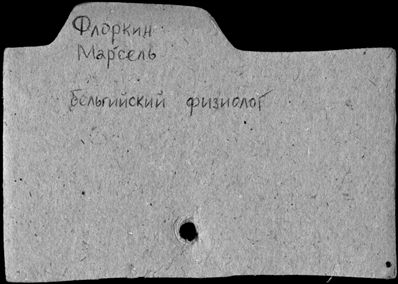 Флоркин
Марсель
Бельгийский физиолог